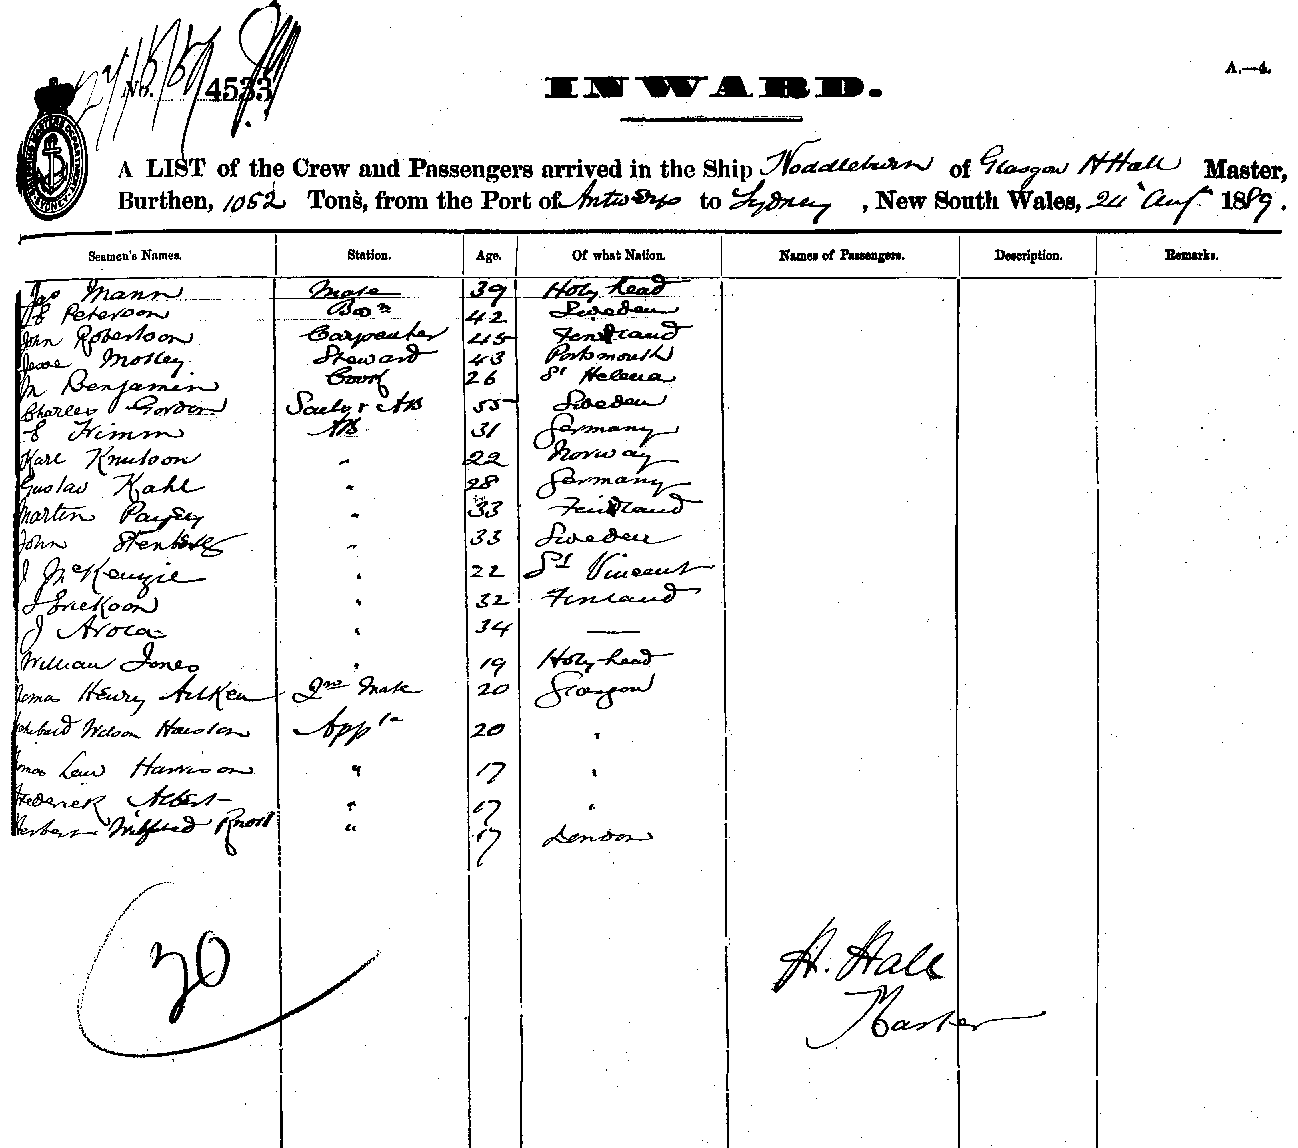 No. 4533
A.—4.
INWARD.
A LIST of the Crew and Passengers arrived in the Ship Noddleburn of Glasgow H Hall Master,
Burthen, 1052 Tons, from the Port of Antwerp to Sydney, New South Wales, 24 Aug 1889.
Seamen's Names. Station. Age. Of what Nation. Names of Passengers. Description. Remarks.
Jas Mann Mate 39 Holy head
Peterson Bosn 42 Sweden
John Robertson Carpenter 45 Finland
Jesse Mosley Steward 43 Portsmouth
Benjamin Cook 26 St Helena
Charles Gordon AB 55 Sweden
Frimm AB 31 Germany
Karl Knutson " 22 Norway
Gustav Kahl " 28 Germany
Martin " 33 Finland
John " 33 Sweden
J McKenzie " 22 St Vincent
J Erickson " 32 Finland
J Arola " 34 —
William Jones " 19 Holyhead
Henry Aitken 2nd Mate 20 Glasgow
Wilson Houston App 20 "
Harrison " 17 "
Frederick Albert " 17 "
Wilfred Knott " 17 London
20
H. Hall
Master